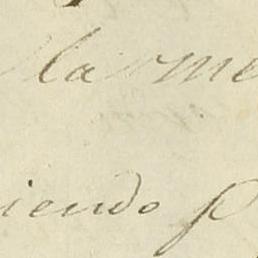 la rme
iendo p